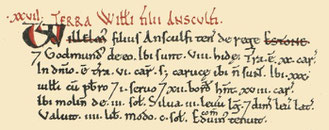 XXVII. TERRA Willi filii Ansculfi.
Willelmus filius Ansculfi ten de rege ESTONE
7 Godmund de eo. Ibi sunt. VIII. hidę. Tra. ē. XX. car.
In dnio. ē. tra. VI. car. sed caruce ibi n sunt. Ibi. XXX.
uilli cū pbro 7 I. seruo 7 XX. bord hnt XX VIII. car.
Ibi molin de. III. sol. Silua. III. leuu lg. 7 dim leu lat.
Valuit. IIII. lib. modo. c. sol. Eduin tenuit.